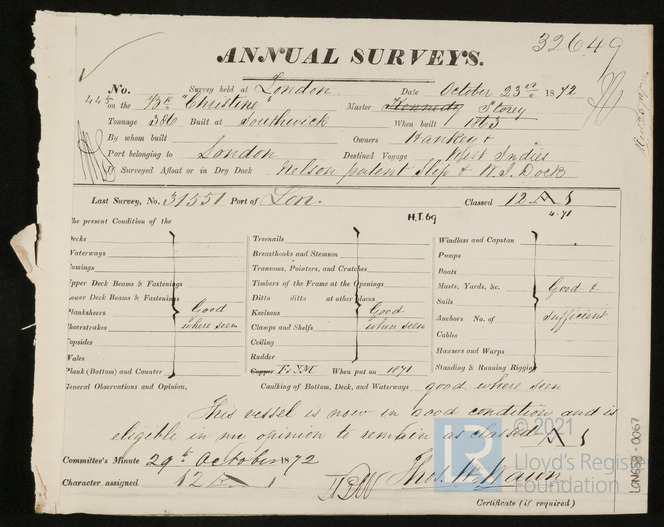 32649
ANNUAL SURVEYS.
No. Survey held at London Date October 23rd 1872
445 on the "Christine" Master Kennedy Storey
Tonnage 386 Built at Southwick When built 1865
By whom built Owners Hankey &
Port belonging to London Destined Voyage West Indies
If Surveyed Afloat or in Dry Dock Nelson patent Slip & W. I. Docks
Last Survey, No. 31551 Port of Lon. Classed 12 A 1
H.T. 69 4.71
The present Condition of the
Decks
Waterways
Comings
Upper Deck Beams & Fastenings
Lower Deck Beams & Fastenings
Planksheers Good
Sheerstrakes where seen
Topsides
Wales
Plank (Bottom) and Counter
Treenails
Breasthooks and Stemson
Transoms, Pointers, and Crutches
Timbers of the Frame at the Openings
Ditto ditto at other places
Keelsons Good
Clamps and Shelfs when seen
Ceiling
Rudder
Copper Y.M. When put on 1871
Windlass and Capstan
Pumps
Boats
Masts, Yards, &c. Good &
Sails
Anchors No. of sufficient
Cables
Hawsers and Warps
Standing & Running Rigging
General Observations and Opinion, Caulking of Bottom, Deck, and Waterways good where seen
This vessel is now in Good condition and is
eligible in my opinion to remain as classed A 1
Committee's Minute 29th October 1872
Character assigned 12 A 1
Certificate (if required)
© 2021
LR
Lloyd's Register
Foundation
LON658-0067